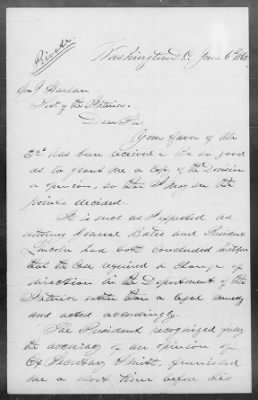 Private
Washington D.C. June 6th
Hon J Harlan
Secy of the Interior.
Dear Sir.
Your favor of the
3d has been received. Be so good
as to grant me a copy of the Decision
or opinion, so that I may see the
points decided.
It is not as I supposed as
Attorney General Bates and President
Lincoln had both concluded
that the case required a change of
direction in the Department of the
Interior rather than a legal
and acted accordingly.
The President recognized fully
the accuracy of an opinion of
Ex Secretary Smith, furnished
me a short time before his